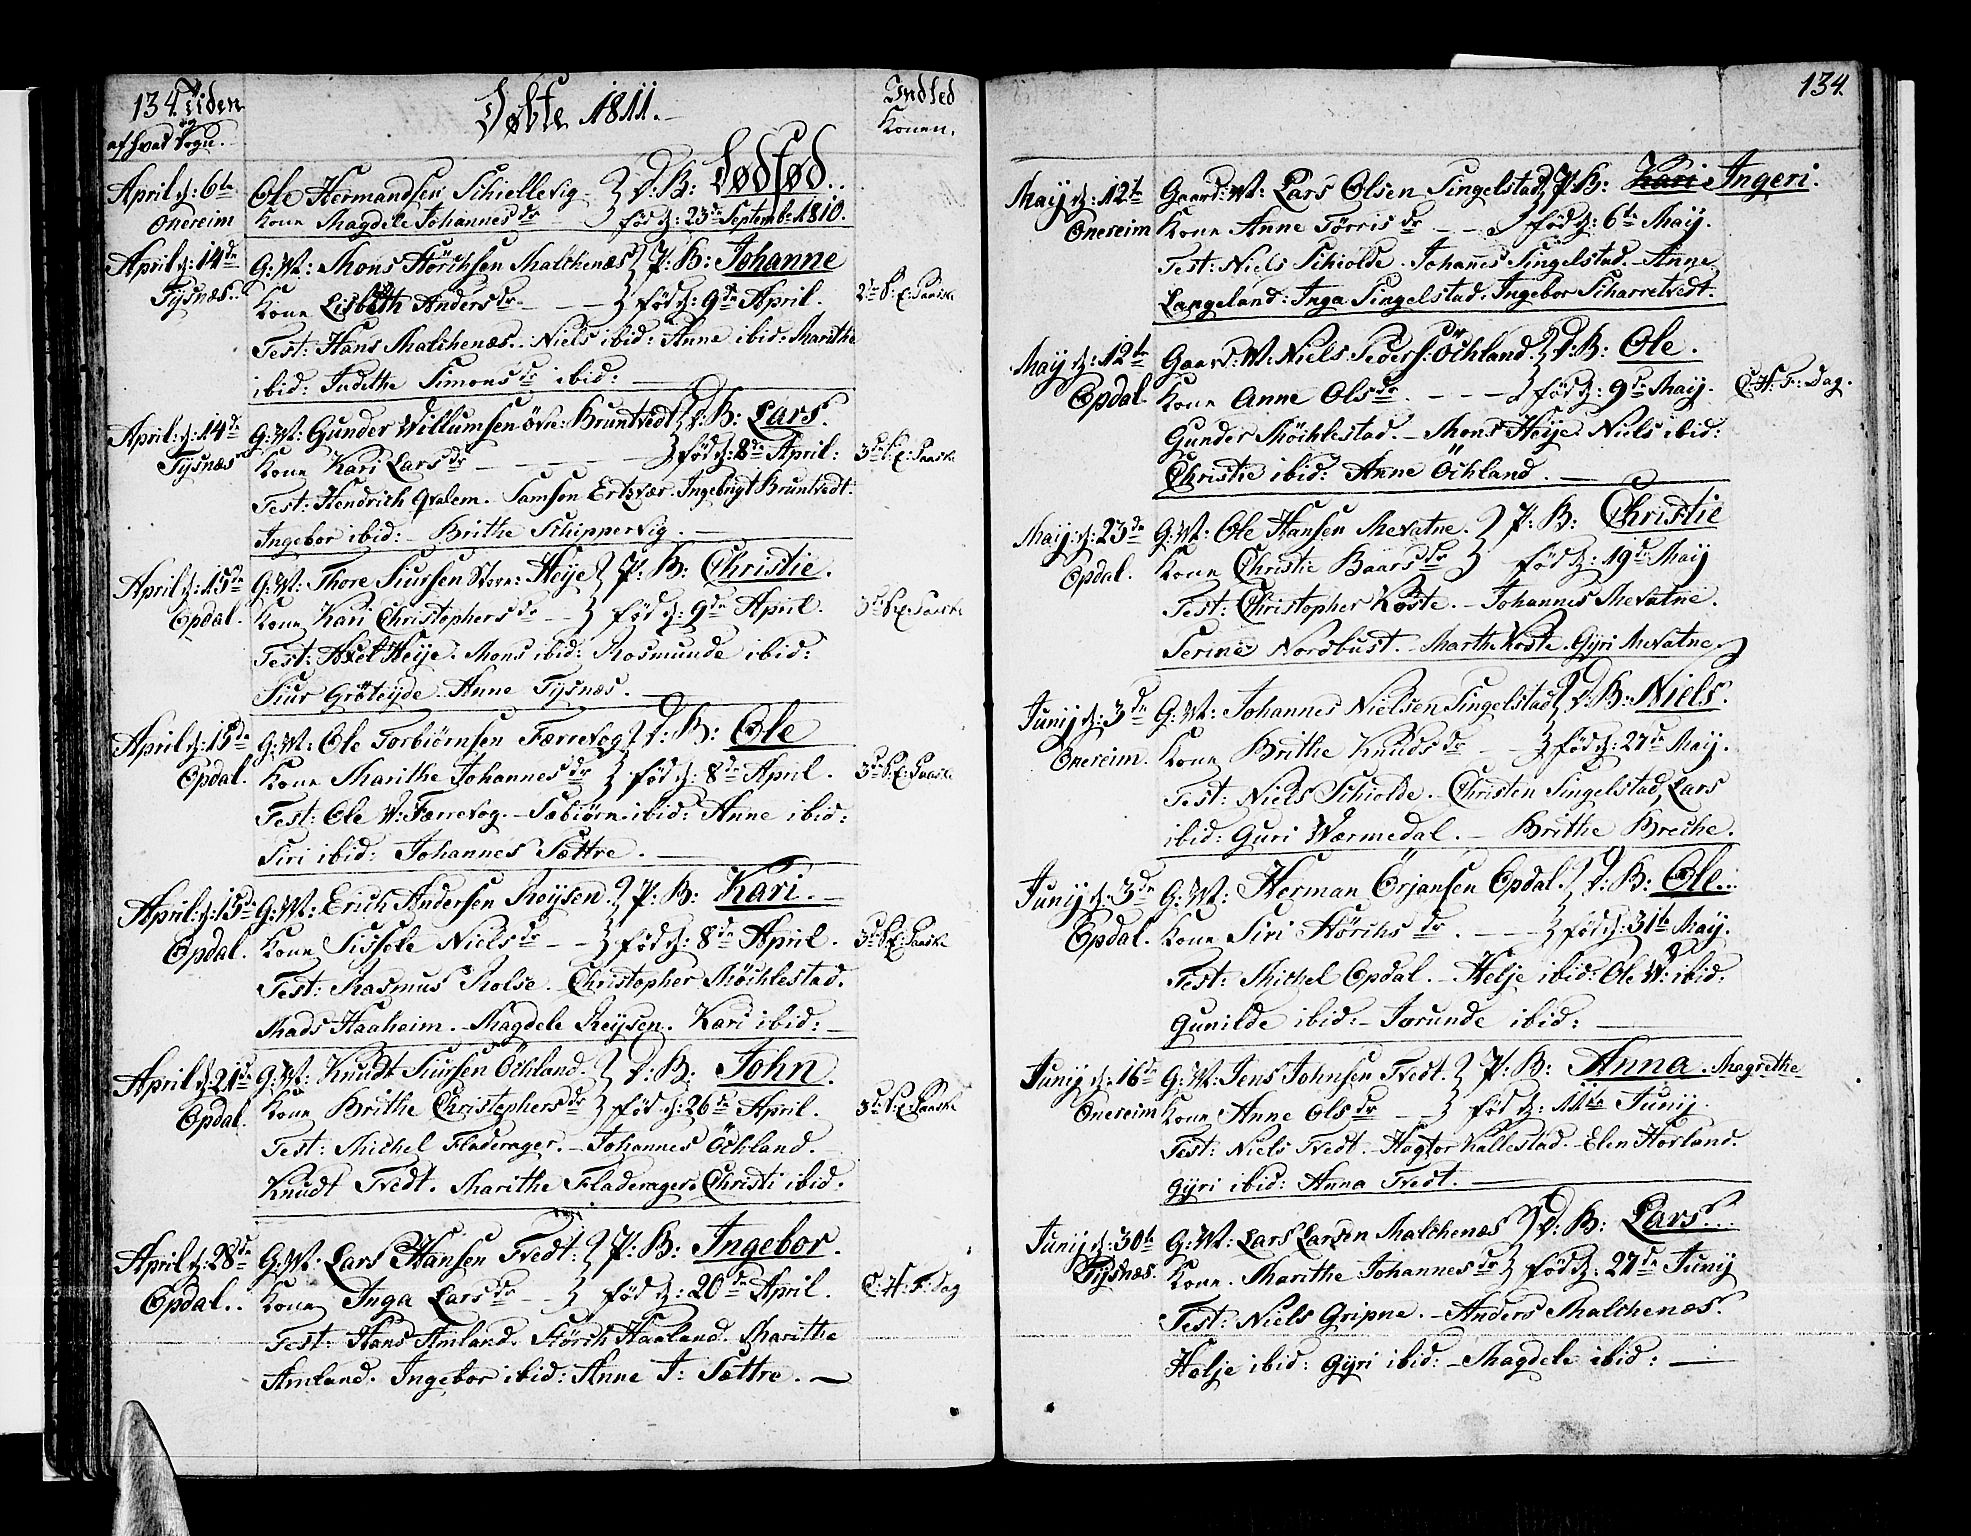 134. Tiden
og
af hvad Sogn.
Døbte 1811.
Indled
Konen.
April d: 6te Ole Hermandsen Schiellevig D: B: Dødfød.
Onereim Kone Magdele Johannes dr fød d: 23de Septemb: 1810.
April d: 14de G: M: Mons Störchsen Malchenæs P: B: Johanne
Tysnæs. Kone Lisbeth Anders dr fød d: 9de April. 2den S: E: Paaske
Test: Hans Malchenæs. Niels ibid: Anne ibid: Marithe
ibid: Judithe Simons dr ibid:
April: d: 14de G: M: Gunder Willumsen övre: Bruntvedt D: B: Lars.
Tysnæs Kone Kari Lars dr fød d: 8de April: 3de S: E: Paaske
Test: Hendrich Qvalem. Samson Ertzvær. Ingebrigt Bruntvedt.
Ingebor ibid: Brithe Schippervig.
April d: 15de G: M: Thore Siursen Store: Heije P: B: Christie.
Opdal. Kone Kari Christophers dr fød d: 9de April. 3de S: E: Paaske
Test: Axel Heije. Mons ibid: Rosmunde ibid:
Siur Gröteijde. Anne Tysnæs.
April d: 15de G: M: Ole Torbiörnsen Færrevog D: B: Ole
Opdal. Kone Marithe Johannes dr fød d: 8de April. 3de S: E: Paaske
Test: Ole N: Færrevog. Sæbiörn ibid: Anne ibid:
Siri ibid: Johannes Sættre.
April: d: 15de G: M: Erich Andersen Reijsen. P: B: Kari.
Opdal. Kone Sissele Niels dr fød d: 8de April. 3de S: E: Paaske
Test: Rasmus Rolse. Christopher Möchlestad.
Mads Haaheim. Magdele Reijsen. Kari ibid:
April d: 21de G: M: Knudt Siursen Öchland. D: B: John.
Opdal. Kone Brithe Christophers dr fød d: 26de April. 3de S: E: Paaske
Test: Michel Fladerager. Johannes Öchland.
Knudt Tvedt. Marithe Fladerager. Christi ibid.
April d: 28de G: M: Lars Hansen Tvedt: P: B: Ingebor.
Opdal. Kone Inga Lars dr fød d: 20de April. C: H: F: Dag
Test: Hans Amland. Störch Haaland. Marithe
Amland. Ingebor ibid: Anne J: Sættre.
134.
Maij d: 12te Gaard: M: Lars Olsen Singelstad P: B: Kari Ingeri.
Onereim Kone Anne Törris dr fød d: 6te Maij.
Test: Niels Schiolde. Johanes Singelstad. Anne
Langeland: Inga Singelstad. Ingebor Scharretvedt.
Maij d: 12te Gaard: M: Niels Peders: Öchland. D: B: Ole.
Opdal. Kone Anne Ols dr. fød d: 9de Maij. C: H: F: Dag.
Gunder Möchlestad. Mons Heije: Niels ibid:
Christie ibid: Anne Öchland.
Maij: d: 23de G: M: Ole Hansen Mevatne. P: B: Christie
Opdal. Kone Christie Baars dr fød d: 19de Maij
Test: Christopher Koste. Johannes Mevatne.
Serine Nordbust. Marthe Koste. Gÿri Mevatne.
Junij d: 3de G: M: Johannes Nielsen Singelstad D: B: Niels.
Onereim. Kone Brithe Knuds dr fød d: 27de Maij.
Test: Niels Schiolde. Christen Singelstad, Lars
ibid: Guri Wermedal. Brithe Breche.
Junij d: 3de G: M: Herman Örjansen Opdal. D: B: Ole.
Opdal. Kone Siri Störchs dr. fød d: 31te Maij.
Test: Michel Opdal. Helje ibid: Ole N: ibid:
Gunilde ibid: Jorunde ibid:
Junij d: 16de G: M: Jens Johnsen Tvedt. P: B: Anna. Magrethe
Onereim Kone Anne Ols dr fød d: 11te Junij.
Test: Niels Tvedt. Hagtor Kallestad. Elen Horland.
Gÿri ibid: Anna Tvedt.
Junij d: 30te G: M: Lars Larsen Malchenæs D: B: Lars.
Tysnæs. Kone. Marithe Johannes dr fød d: 27de Junij
Test: Niels Gripne. Anders Malchenæs.
Helje ibid: Gÿri ibid: Magdele ibid: